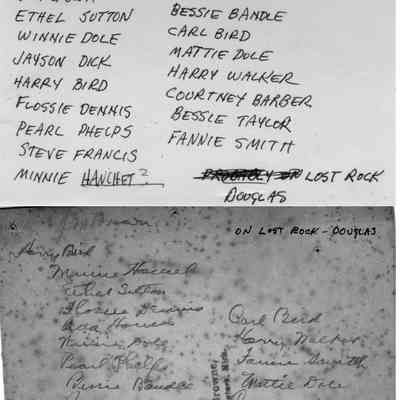 ETHEL SUTTON
WINNIE DOLE
JAYSON DICK
HARRY BIRD
FLOSSIE DENNIS
PEARL PHELPS
STEVE FRANCIS
MINNIE HANCHET?
BESSIE BANDLE
CARL BIRD
MATTIE DOLE
HARRY WALKER
COURTNEY BARBER
BESSIE TAYLOR
FANNIE SMITH
LOST ROCK
DOUGLAS
ON LOST ROCK - DOUGLAS
Harry Bird
Minnie
Ethel Sutton
Flossie Dennis
Winnie Dole
Pearl Phelps
Bessie Bandle
Carl Bird
Harry Walker
Fannie Smith
Mattie Dole